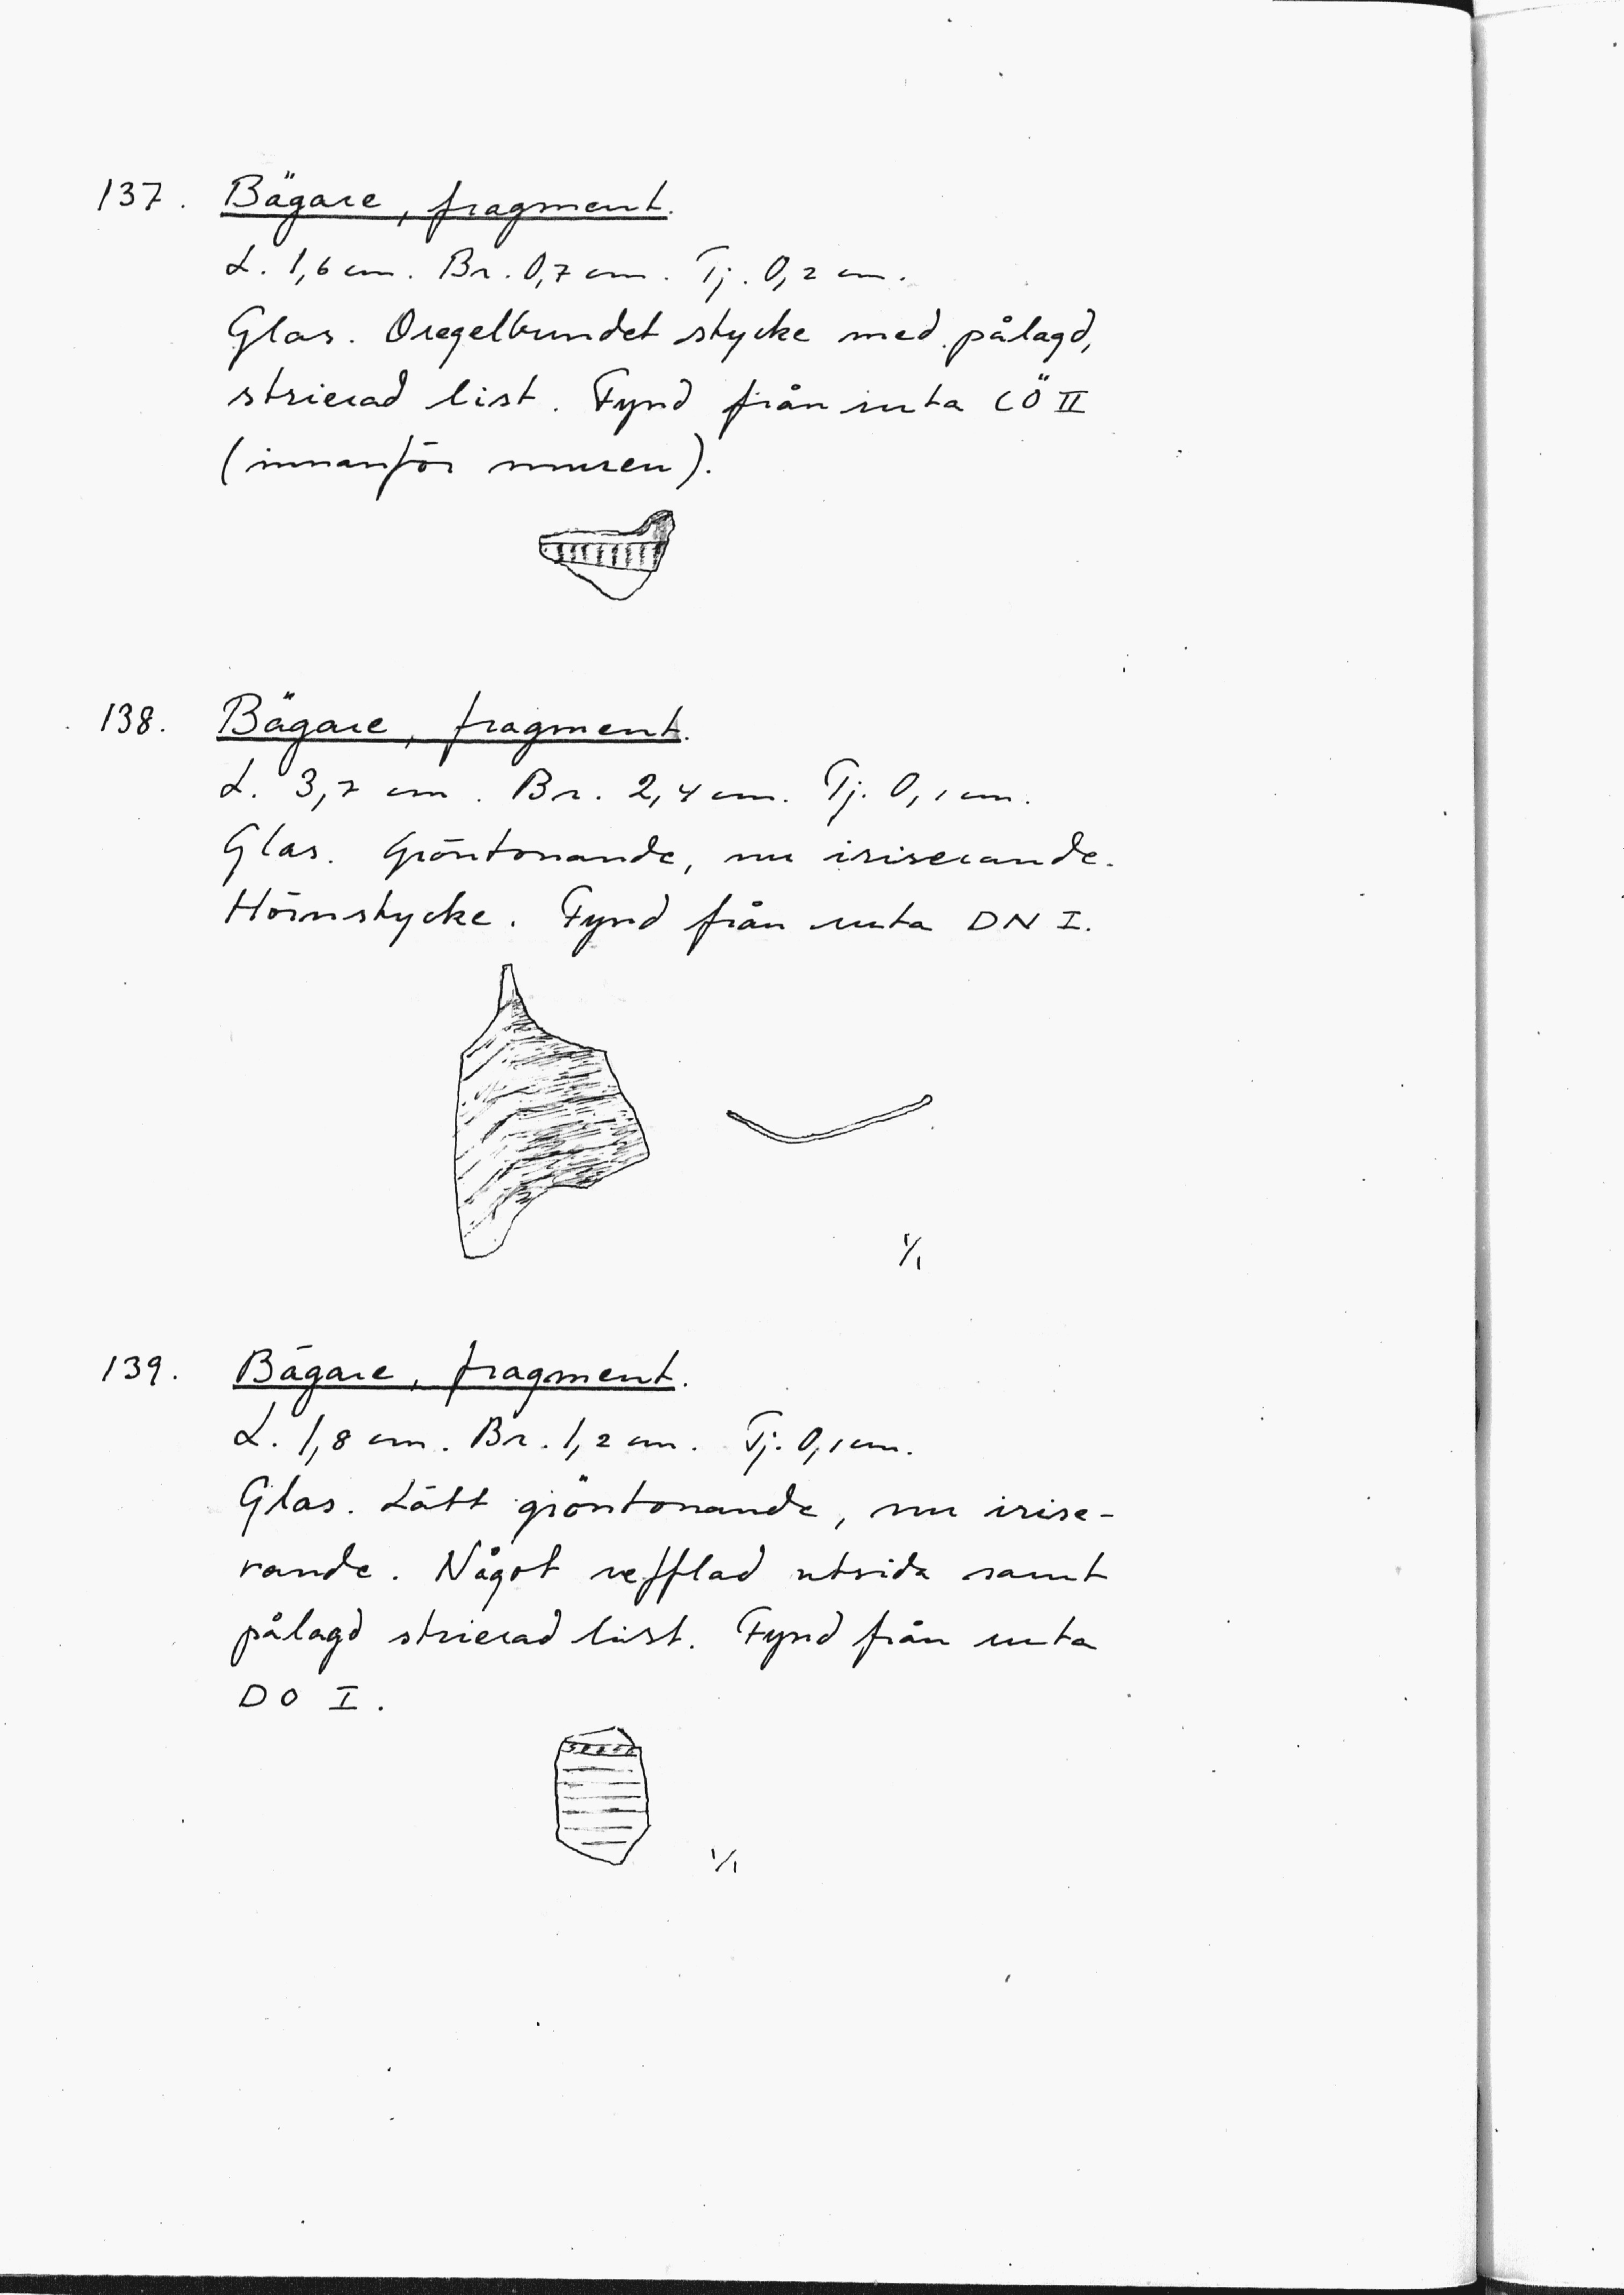 137. Bägare, fragment.
L. 1,6 cm. Br. 0,7 cm. Tj. 0,2 cm.
Glas. Oregelbundet stycke med pålagd,
strierad list. Fynd från ruta CÖ II
(innanför muren).
138. Bägare, fragment.
L. 3,7 cm. Br. 2,4 cm. Tj. 0,1 cm.
Glas. Gröntonande, nu iriserande.
Hörnstycke. Fynd från ruta DN I.
1/1
139. Bägare, fragment.
L. 1,8 cm. Br. 1,2 cm. Tj. 0,1 cm.
Glas. Lätt gröntonande, nu irise-
rande. Något refflad utsida samt
pålagd strierad list. Fynd från ruta
DO I.
1/1